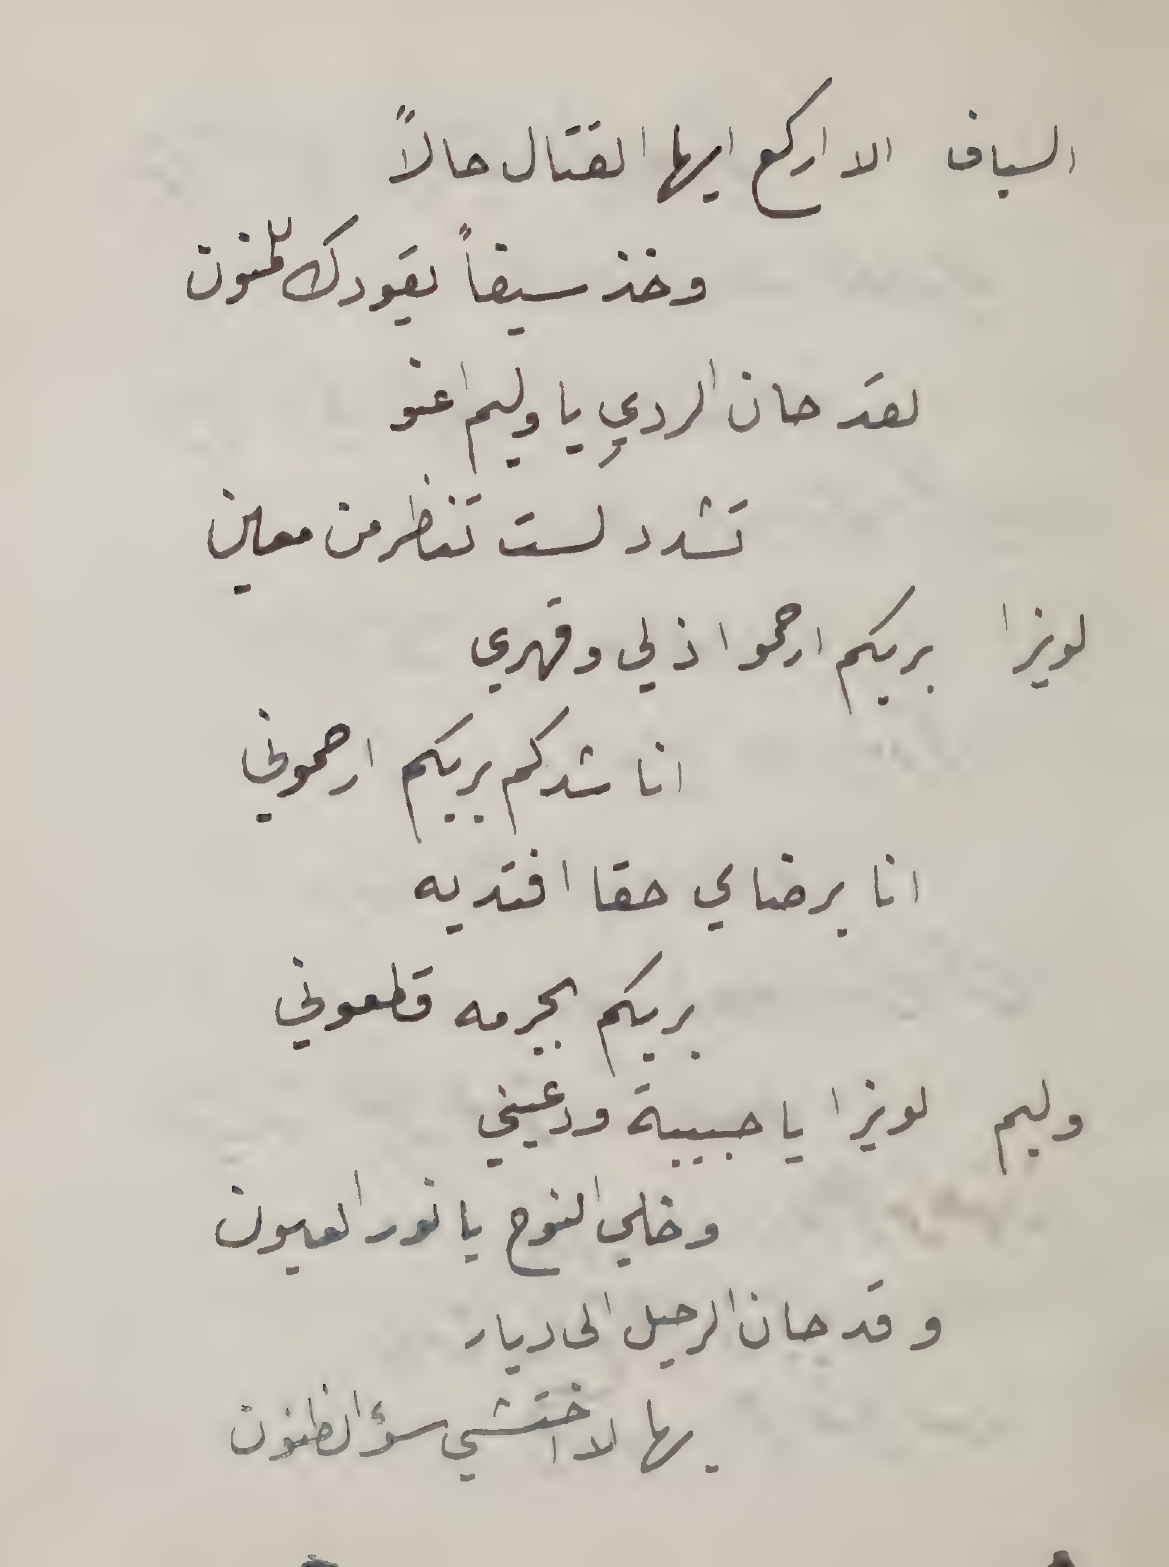 السياف الا اركع ايها القتال حالاً
وخذ سيفاً يقودك للمنون
لقد حان الردي يا وليم اغنو
تشدد لست تنظر من معين
لويزا بربكم ارحموا ذلي وقهري
اناشدكم بربكم ارحموني
انا برضاي حقا افتديه
بربكم بجرمه قطعوني
وليم لويزا يا حبيبة ودعيني
وخلي النوح يا نور العيون
وقد حان الرحيل الى ديار
بها لا اختشي سؤ الظنون